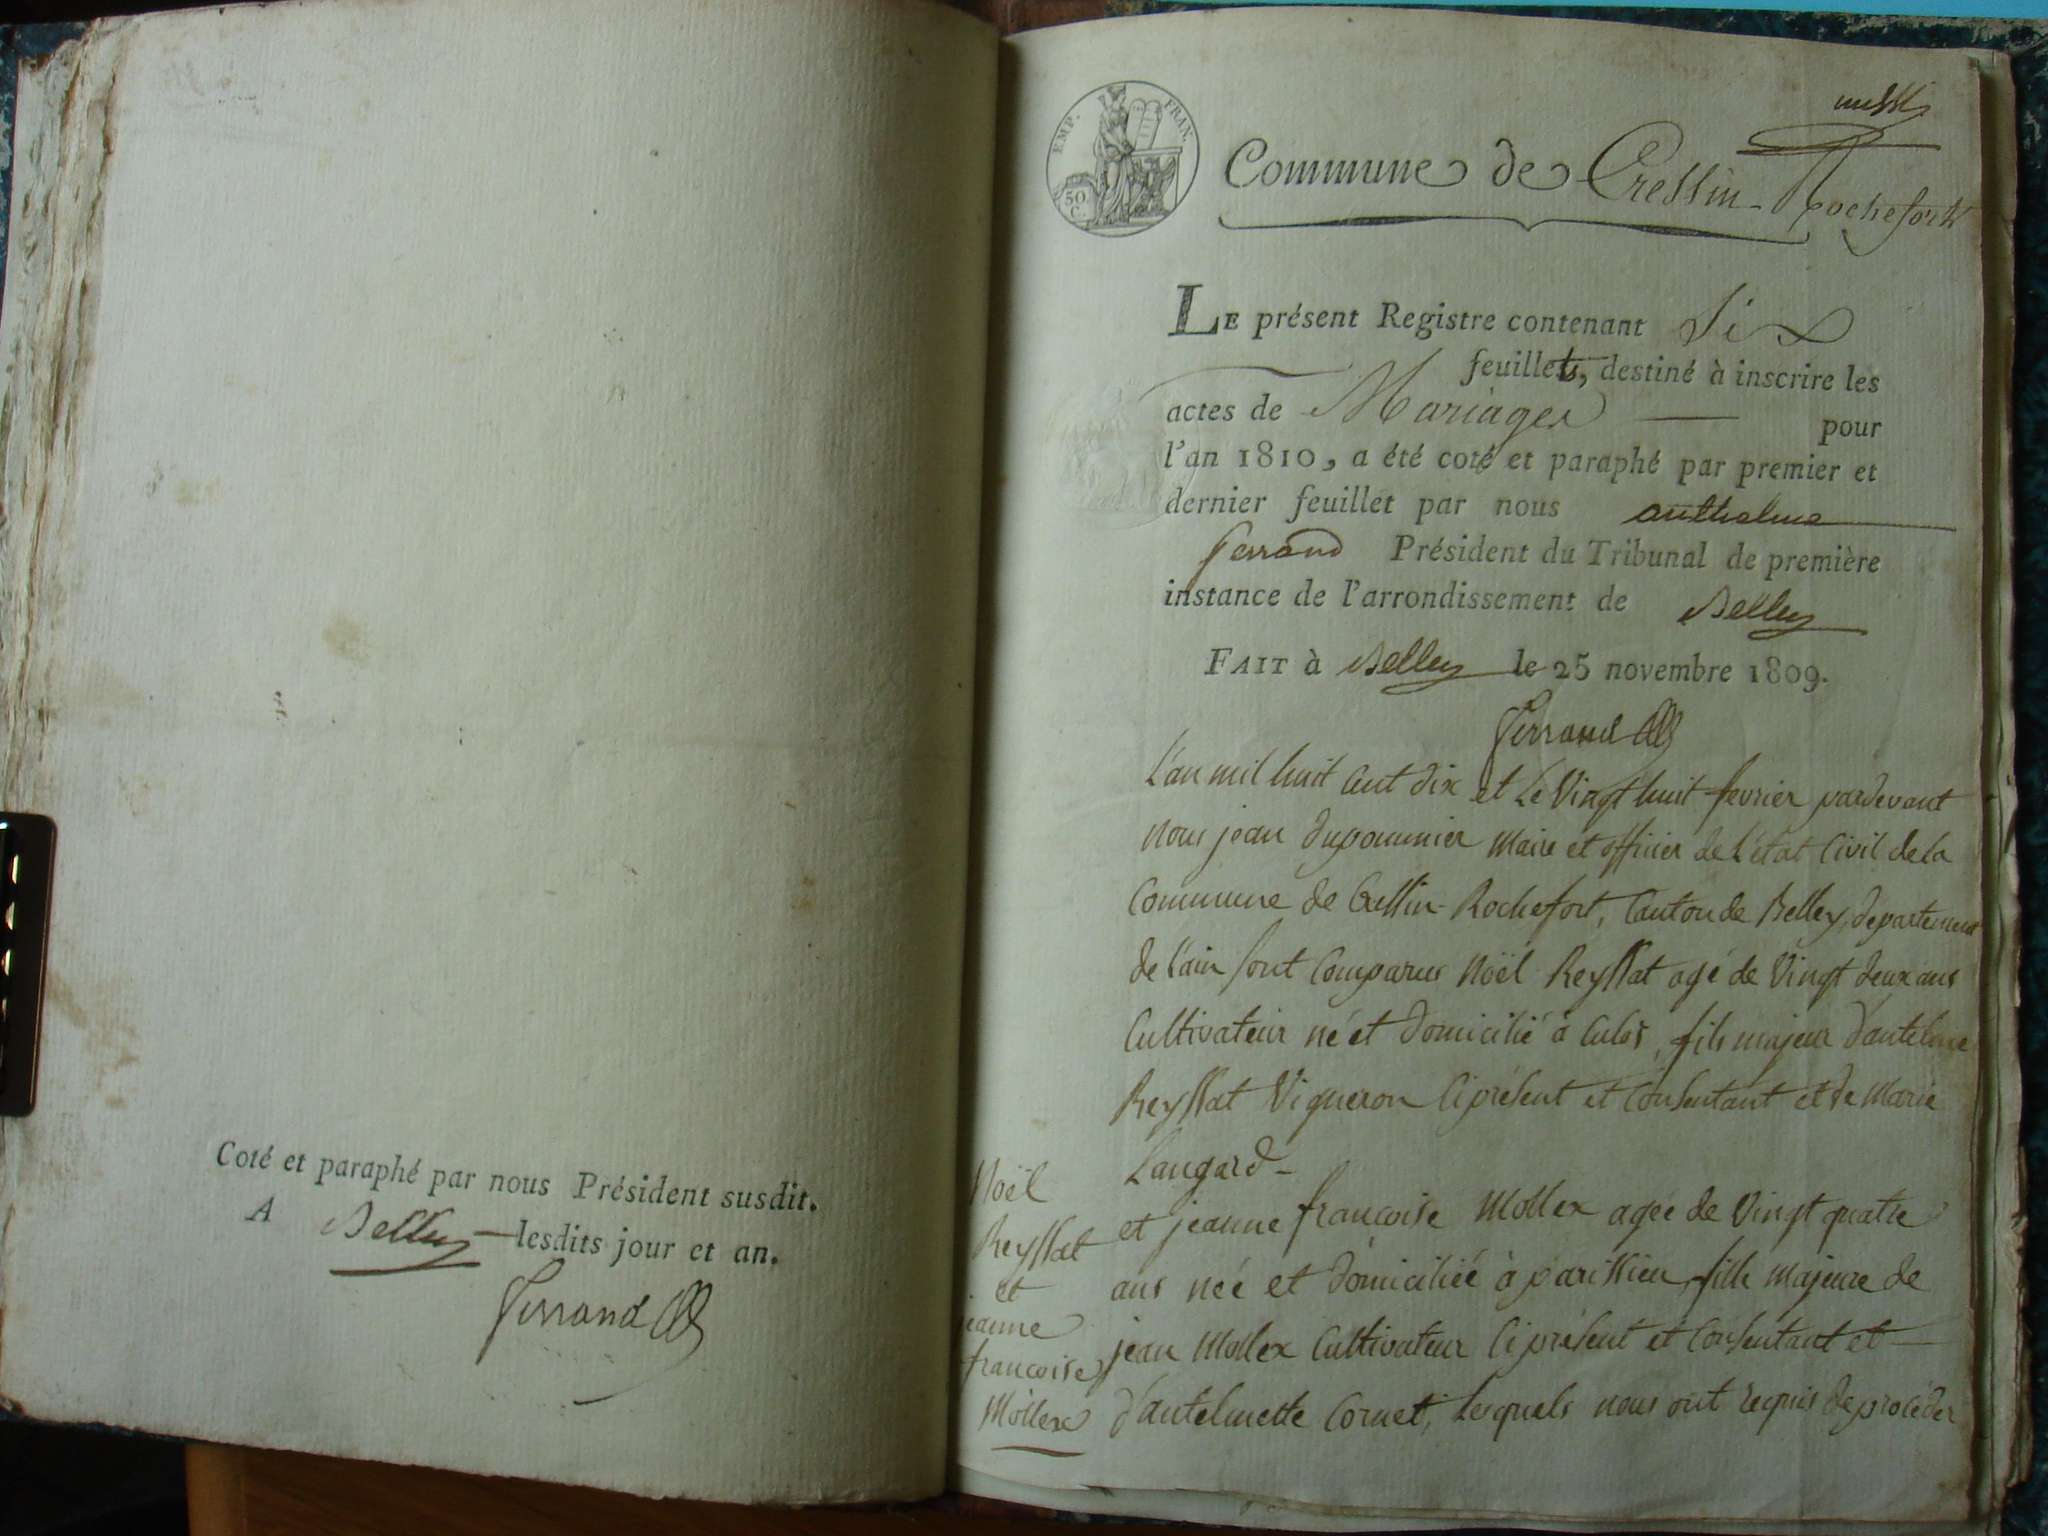 Coté et paraphé par nous Président susdit.
A Belley lesdits jour et an.
Ferrand
EMP. FRAN.
50.
C.
Commune de Cressin-Rochefort
LE présent Registre contenant Six
feuillets, destiné à inscrire les
actes de Mariages pour
l'an 1810, a été coté et paraphé par premier et
dernier feuillet par nous anthelme
ferrand Président du Tribunal de première
instance de l'arrondissement de Belley
FAIT à Belley le 25 novembre 1809.
Ferrand
L'an mil huit cent dix et Le Vingt huit fevrier pardevant
nous jean dupommier Maire et officier de L'état Civil de la
Commune de Cressin-Rochefort, Canton de Belley, departement
de l'ain sont Comparus Noël Reyssat agé de Vingt deux ans
Cultivateur né et domicilié à Culos, fils majeur d'antelme
Reyssat Vigneron Ci présent et Consentant et de Marie
Langard -
et jeanne françoise Mollex agée de Vingt quatre
ans née et domiciliée à parissieu, fille majeure de
jean Mollex Cultivateur Ci présent et Consentant et
d'antelmette Cornet, Lesquels nous ont requis de procéder
Noël
Reyssat
et
jeanne
françoise
Mollex